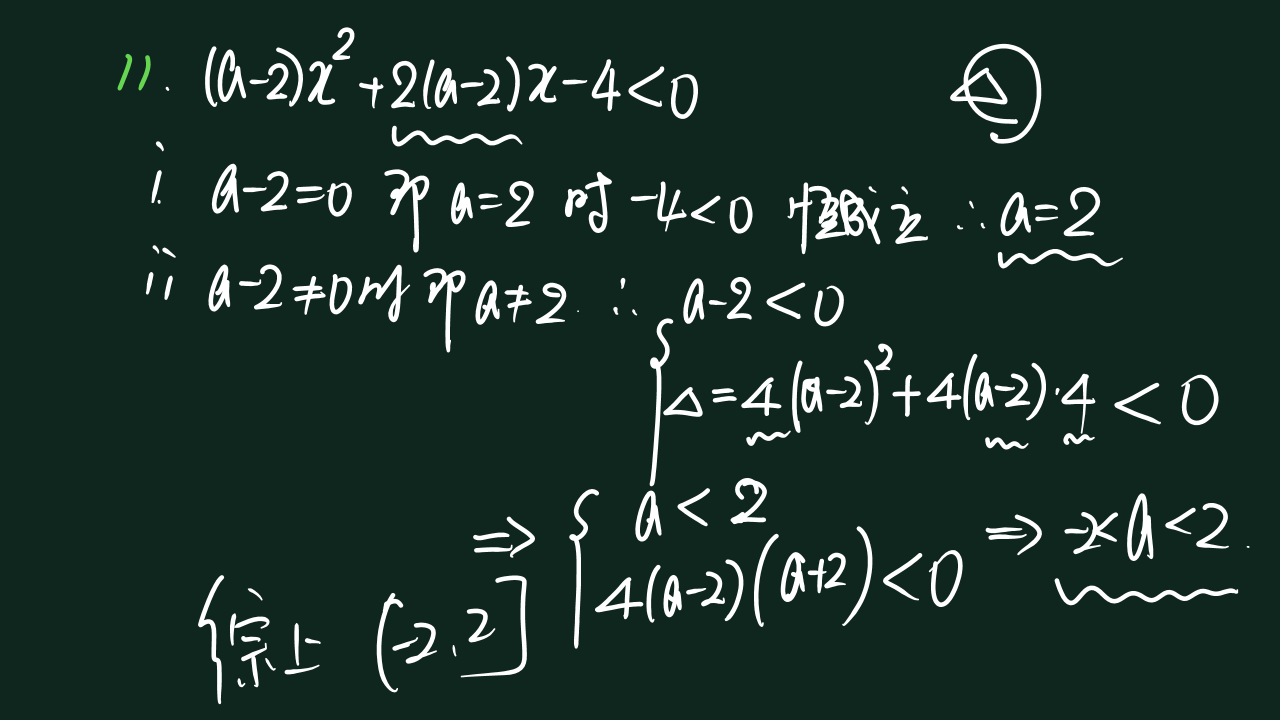 11. (a-2)x²+2(a-2)x-4<0
Δ
i. a-2=0 即 a=2 时 -4<0 恒成立 ∴a=2
ii a-2≠0时 即 a≠2. ∴ a-2<0
Δ=4(a-2)²+4(a-2)·4<0
⇒ { a<2
4(a-2)(a+2)<0 ⇒ -2<a<2.
综上 (-2,2]